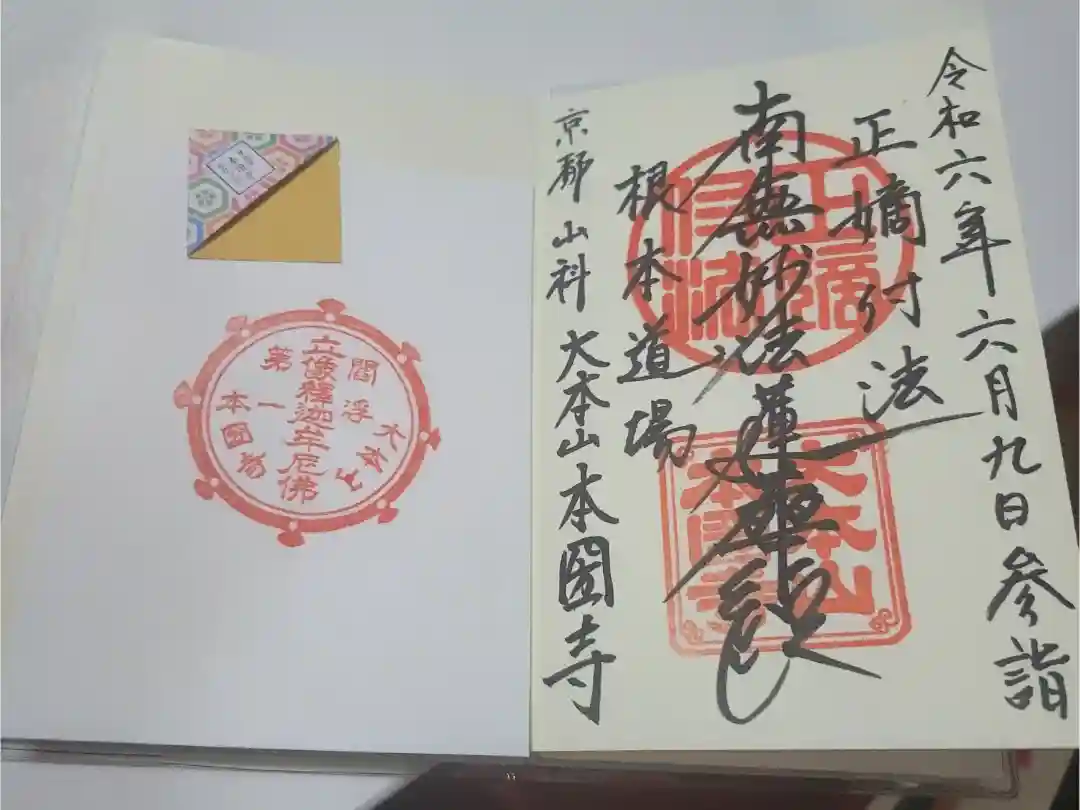 令和六年六月九日参詣
正嫡付法
南無妙法蓮華経
根本道場
京都山科大本山本圀寺
正嫡
付法
大本山
本圀寺
閻浮
第一
立像釋迦牟尼佛
大本山
本圀寺